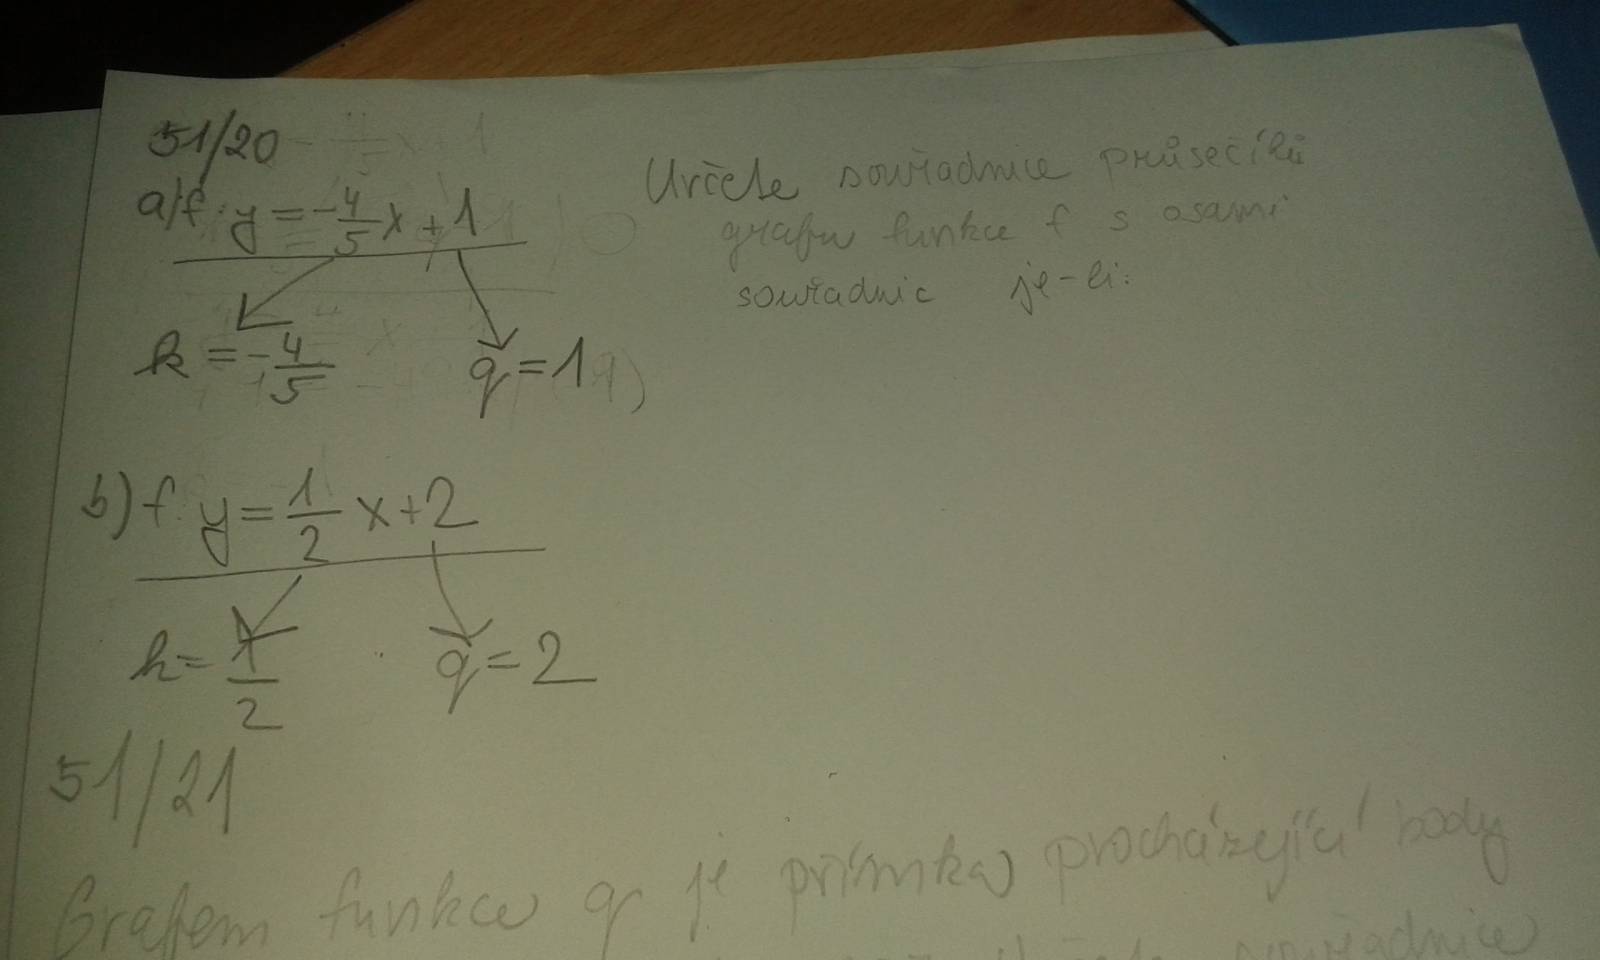 51/20
a/f: y = -4/5 x + 1
Určete souřadnice průsečíků
grafu funkce f s osami
souřadnic je-li:
k = -4/5 q = 1
b) f: y = 1/2 x + 2
k = 1/2 q = 2
51/21
Grafem funkce g je přímka procházející body
souřadnice